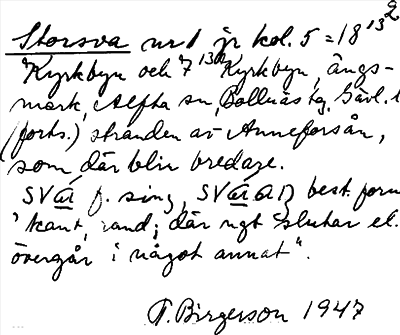 Storsva nr 1 jr kol. 5 = 18 13 2
Kyrkbyn och 7 13a Kyrkbyn, ängs-
mark, Alfta sn, Bollnäs tg, Gävl. l
(forts.) stranden av Anneforsån,
som där blir bredare.
svar f. sing, svaran best. form
"kant, rand; där ngt slutar el.
övergår i något annat".
F. Birgerson 1947